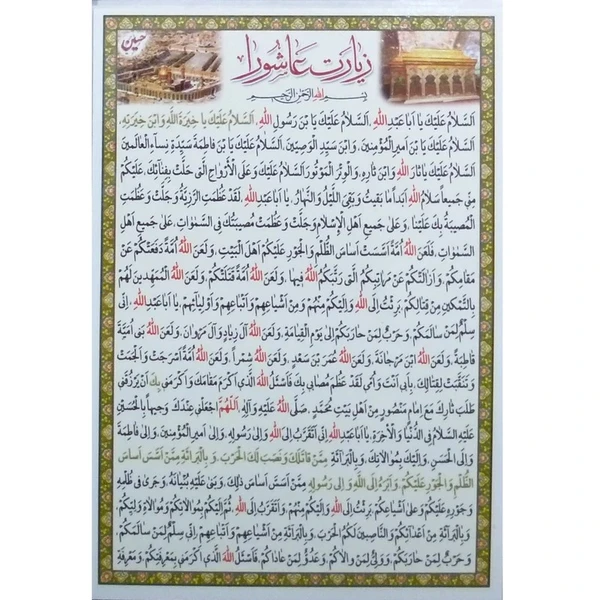 زیارت عاشورا
حسین
بِسْمِ اللهِ الرَّحْمٰنِ الرَّحیمِ
اَلسَّلامُ عَلَيْكَ يا اَبا عَبْدِاللهِ، اَلسَّلامُ عَلَيْكَ يَا بْنَ رَسُولِ اللهِ، اَلسَّلامُ عَلَيْكَ يا خِيَرَةَ اللَّهِ وَابْنَ خِيَرَتِهِ،
اَلسَّلامُ عَلَيْكَ يَا بْنَ اَميرِ الْمُؤْمِنينَ، وَابْنَ سَيِّدِ الْوَصِيّينَ، اَلسَّلامُ عَلَيْكَ يَا بْنَ فاطِمَةَ سَيِّدَةِ نِساءِ الْعالَمينَ
اَلسَّلامُ عَلَيْكَ يا ثارَ اللهِ وَابْنَ ثارِهِ، وَالْوِتْرَ الْمَوْتُورَ اَلسَّلامُ عَلَيْكَ وَعَلَى الْأَرْواحِ الَّتى حَلَّتْ بِفِنائِكَ، عَلَيْكُمْ
مِنّى جَميعاً سَلامُ اللهِ اَبَداً ما بَقيتُ وَبَقِىَ اللَّيْلُ وَالنَّهارُ، يا اَبا عَبْدِاللهِ، لَقَدْ عَظُمَتِ الرَّزِيَّةُ وَجَلَّتْ وَعَظُمَتِ
الْمُصيبَةُ بِكَ عَلَيْنا، وَعَلى جَميعِ اَهْلِ الْاِسْلامِ وَجَلَّتْ وَعَظُمَتْ مُصيبَتُكَ فِى السَّمٰواتِ، عَلى جَميعِ اَهْلِ
السَّمٰواتِ، فَلَعَنَ اللهُ اُمَّةً اَسَّسَتْ اَساسَ الظُّلْمِ وَالْجَوْرِ عَلَيْكُمْ اَهْلَ الْبَيْتِ، وَلَعَنَ اللهُ اُمَّةً دَفَعَتْكُمْ عَنْ
مَقامِكُمْ، وَاَزالَتْكُمْ عَنْ مَراتِبِكُمُ الَّتى رَتَّبَكُمُ اللهُ فيها، وَلَعَنَ اللهُ اُمَّةً قَتَلَتْكُمْ، وَلَعَنَ اللهُ الْمُمَهِّدينَ لَهُمْ
بِالتَّمْكينِ مِنْ قِتالِكُمْ، بَرِئْتُ اِلَى اللهِ وَاِلَيْكُمْ مِنْهُمْ وَمِنْ اَشْياعِهِمْ وَاَتْباعِهِمْ وَاَوْلِيائِهِمْ، يا اَبا عَبْدِاللهِ، اِنّى
سِلْمٌ لِمَنْ سالَمَكُمْ، وَحَرْبٌ لِمَنْ حارَبَكُمْ اِلى يَوْمِ الْقِيامَةِ، وَلَعَنَ اللهُ آلَ زِيادٍ وَآلَ مَرْوانَ، وَلَعَنَ اللهُ بَنى اُمَيَّةَ
قاطِبَةً، وَلَعَنَ اللهُ ابْنَ مَرْجانَةَ، وَلَعَنَ اللهُ عُمَرَ بْنَ سَعْدٍ، وَلَعَنَ اللهُ شِمْراً، وَلَعَنَ اللهُ اُمَّةً اَسْرَجَتْ وَاَلْجَمَتْ
وَتَنَقَّبَتْ لِقِتالِكَ، بِاَبى اَنْتَ وَاُمّى لَقَدْ عَظُمَ مُصابى بِكَ فَاَسْئَلُ اللهَ الَّذى اَكْرَمَ مَقامَكَ وَاَكْرَمَنى بِكَ اَنْ يَرْزُقَنى
طَلَبَ ثارِكَ مَعَ اِمامٍ مَنْصُورٍ مِنْ اَهْلِ بَيْتِ مُحَمَّدٍ، صَلَّى اللهُ عَلَيْهِ وَآلِهِ، اَللّهُمَّ اجْعَلْنى عِنْدَكَ وَجيهاً بِالْحُسَيْنِ
عَلَيْهِ السَّلامُ فِى الدُّنْيا وَالْآخِرَةِ، يا اَبا عَبْدِاللهِ اِنّى اَتَقَرَّبُ اِلَى اللهِ، وَاِلى رَسُولِهِ، وَاِلى اَميرِ الْمُؤْمِنينَ، وَاِلى فاطِمَةَ
وَاِلَى الْحَسَنِ، وَاِلَيْكَ بِمُوالاتِكَ، وَبِالْبَرائَةِ مِمَّنْ قاتَلَكَ وَنَصَبَ لَكَ الْحَرْبَ، وَبِالْبَرائَةِ مِمَّنْ اَسَّسَ اَساسَ
الظُّلْمِ وَالْجَوْرِ عَلَيْكُمْ، وَاَبْرَءُ اِلَى اللهِ وَاِلى رَسُولِهِ مِمَّنْ اَسَّسَ اَساسَ ذلِكَ، وَبَنى عَلَيْهِ بُنْيانَهُ، وَجَرى فى ظُلْمِهِ
وَجَوْرِهِ عَلَيْكُمْ وَعَلى اَشْياعِكُمْ، بَرِئْتُ اِلَى اللهِ وَاِلَيْكُمْ مِنْهُمْ، وَاَتَقَرَّبُ اِلَى اللهِ، ثُمَّ اِلَيْكُمْ بِمُوالاتِكُمْ وَمُوالاةِ وَلِيِّكُمْ،
وَبِالْبَرائَةِ مِنْ اَعْدائِكُمْ وَالنّاصِبينَ لَكُمُ الْحَرْبَ، وَبِالْبَرائَةِ مِنْ اَشْياعِهِمْ وَاَتْباعِهِمْ، اِنّى سِلْمٌ لِمَنْ سالَمَكُمْ،
وَحَرْبٌ لِمَنْ حارَبَكُمْ، وَوَلِىٌّ لِمَنْ والاكُمْ، وَعَدُوٌّ لِمَنْ عاداكُمْ، فَاَسْئَلُ اللهَ الَّذى اَكْرَمَنى بِمَعْرِفَتِكُمْ، وَمَعْرِفَةِ